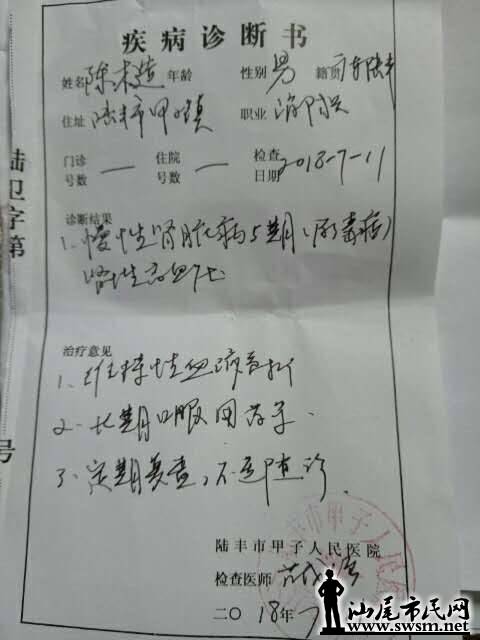 疾病诊断书
姓名 陈木造 年龄 性别 男 籍贯 广东陆丰
住址 陆丰市甲子镇 职业
门诊号数 一 住院号数 一 检查日期 2018-7-11
诊断结果
1. 慢性肾脏病5期（尿毒症）
肾性高血压
治疗意见
1、维持性血液透析
2、长期口服用药
3、定期复查，不适随诊.
陆丰市甲子人民医院
检查医师
二〇18年7
陆卫字第
号
汕尾市民网
www.swsm.net